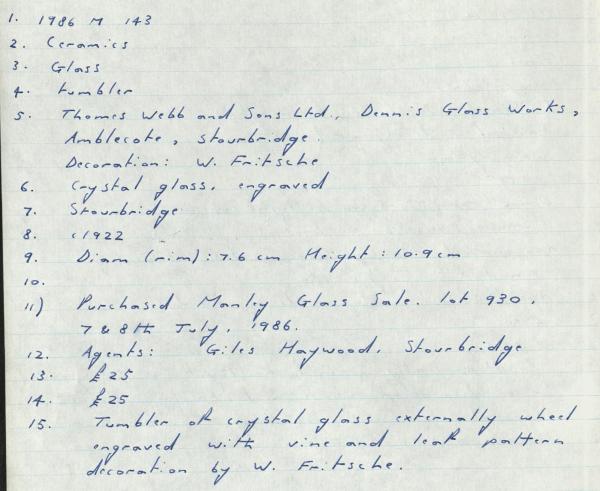 1. 1986 M 143
2. Ceramics
3. Glass
4. tumbler
5. Thomas Webb and Sons Ltd., Dennis Glass Works,
Amblecote, Stourbridge.
Decoration: W. Fritsche
6. Crystal glass, engraved
7. Stourbridge
8. c1922
9. Diam (rim): 7.6 cm Height: 10.9 cm
10.
11) Purchased Manley Glass Sale. lot 930.
7 & 8th July, 1986.
12. Agents: Giles Haywood, Stourbridge
13. £25
14. £25
15. Tumbler of crystal glass externally wheel
engraved with vine and leaf pattern
decoration by W. Fritsche.